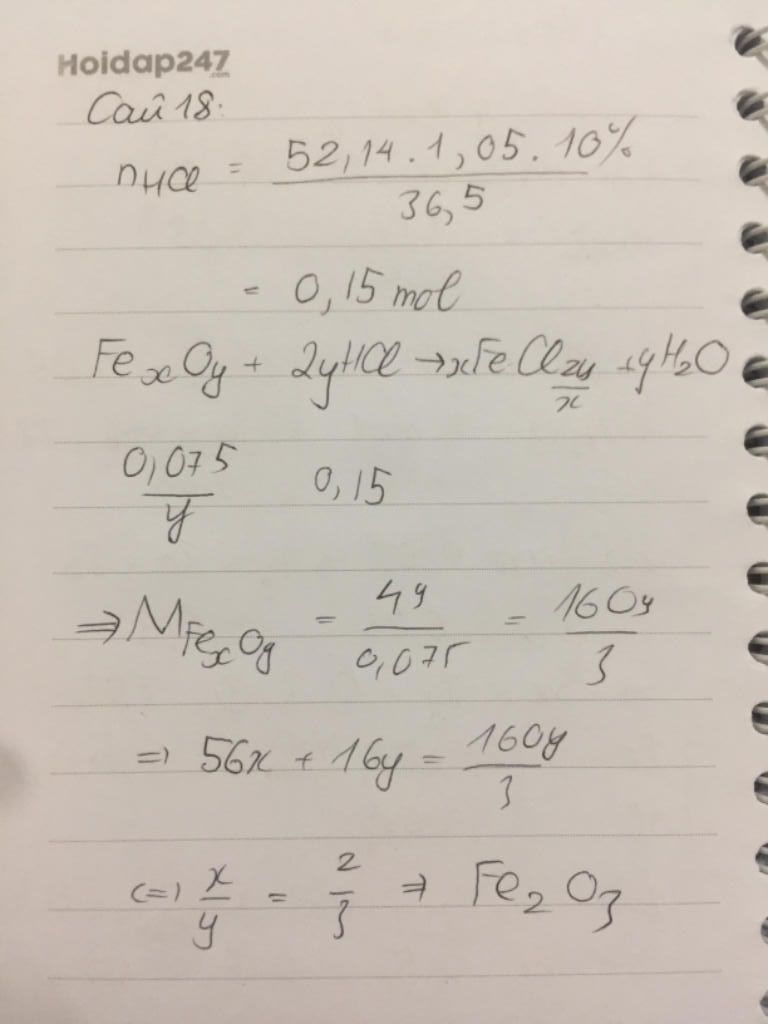 Hoidap247
.com
Câu 18:
nHCl = 52,14 . 1,05 . 10% / 36,5
= 0,15 mol
FexOy + 2yHCl → xFeCl2y/x + yH2O
0,075/y 0,15
⇒ MFexOy = 4y/0,075 = 160y/3
=> 56x + 16y = 160y/3
<=> x/y = 2/3 ⇒ Fe2O3